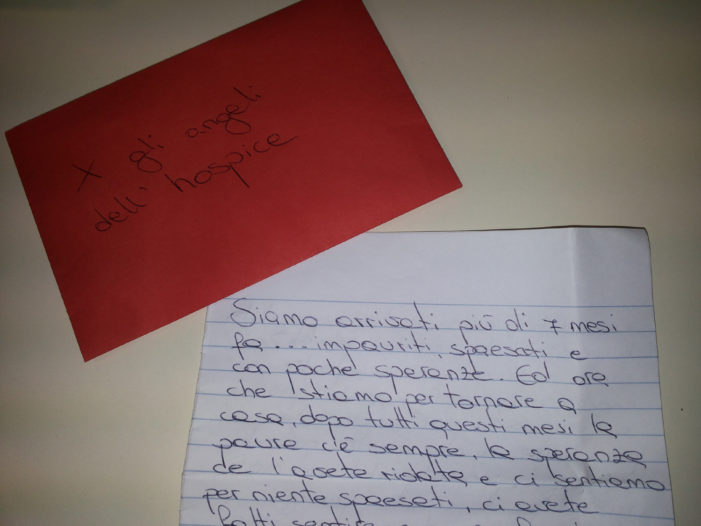 X gli angeli
dell' hospice
Siamo arrivati più di 7 mesi
fa... impauriti, spaesati e
con poche speranze. Ed ora
che stiamo per tornare a
casa, dopo tutti questi mesi la
paura c'è sempre, la speranza
ce l'avete ridata e ci sentiamo
per niente spaesati, ci avete
fatti